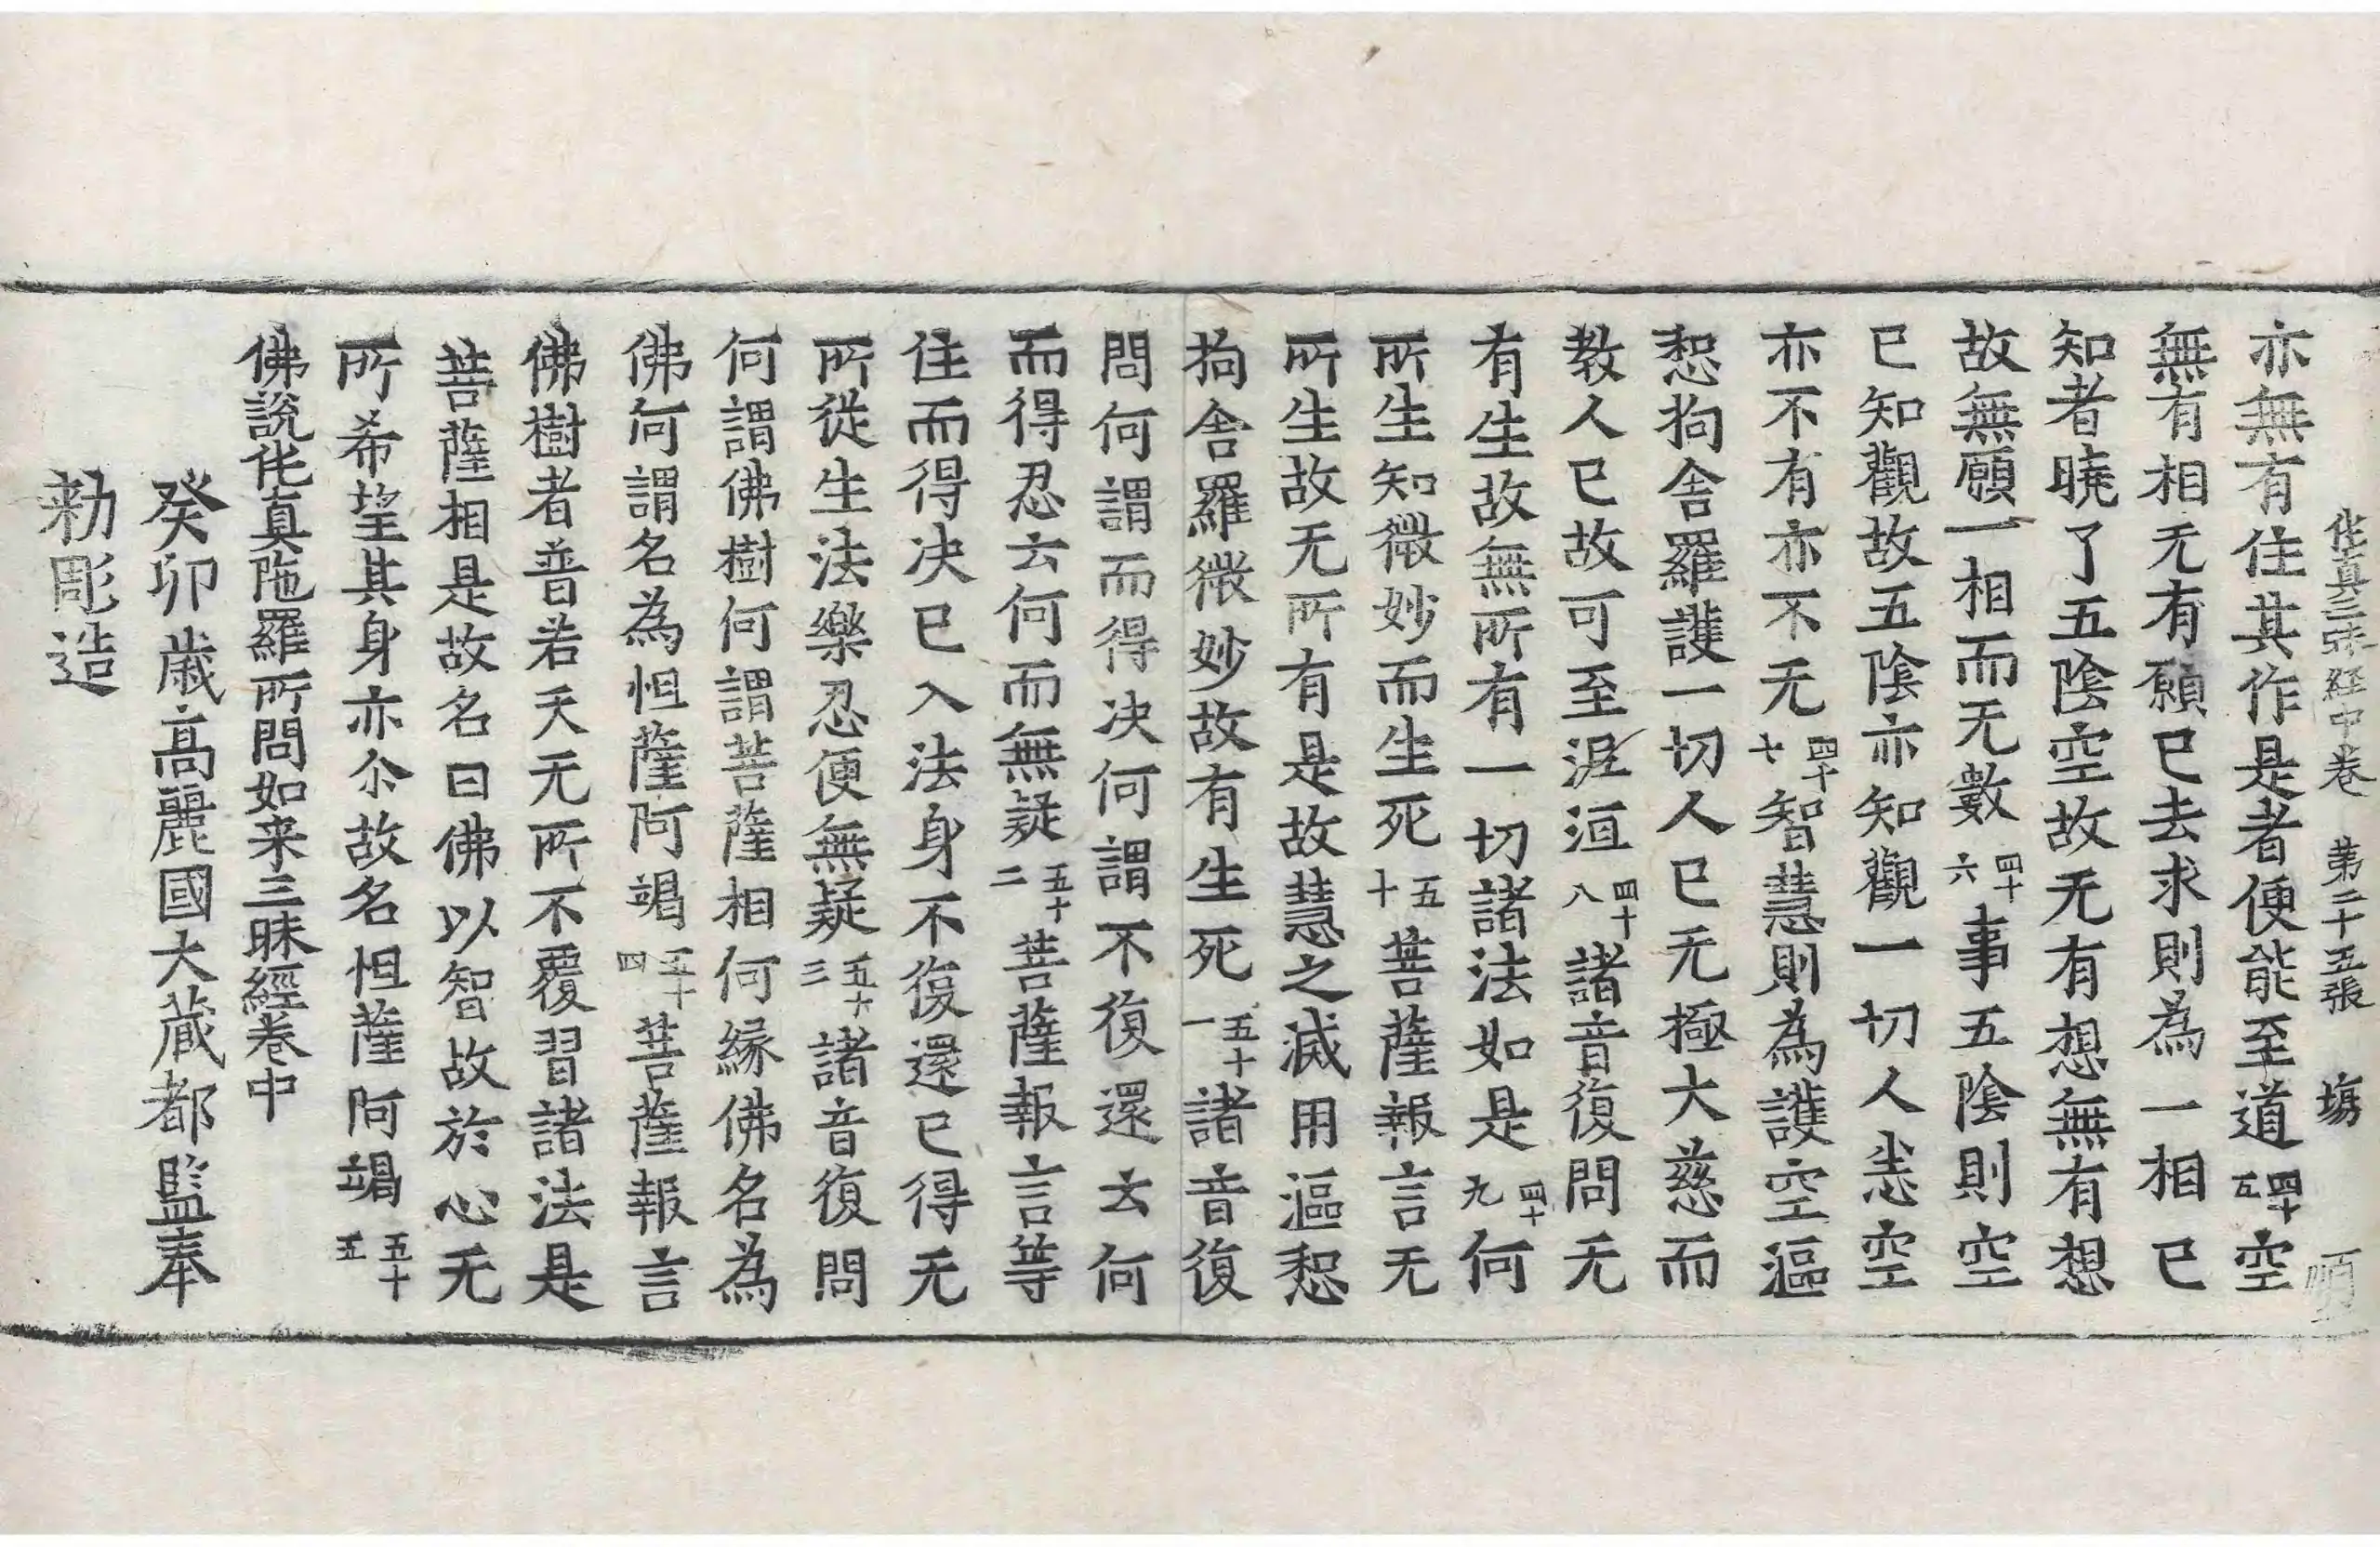 佗真三昧經中卷 第二十五張 塲
亦無有住其作是者便能至道四十五空
無有相无有願已去求則為一相已
知者曉了五陰空故无有想無有想
故無願一相而无數四十六事五陰則空
已知觀故五陰亦知觀一切人恙空
亦不有亦不无四十七智慧則為護空漚
惒拘舍羅護一切人已无極大慈而
教人已故可至泥洹四十八諸音復問无
有生故無所有一切諸法如是四十九何
所生知微妙而生死五十菩薩報言无
所生故无所有是故慧之滅用漚惒
拘舍羅微妙故有生死五十一諸音復
問何謂而得决何謂不復還去何
而得忍去何而無疑五十二菩薩報言等
住而得决已入法身不復還已得无
所從生法樂忍便無疑五十三諸音復問
何謂佛樹何謂菩薩相何緣佛名為
佛何謂名為怛薩阿竭五十四菩薩報言
佛樹者普若天无所不覆習諸法是
菩薩相是故名曰佛以智故於心无
所希望其身亦尒故名怛薩阿竭五十五
佛說伅真陁羅所問如来三昧經卷中
癸卯歲高麗國大藏都監奉
勅彫造